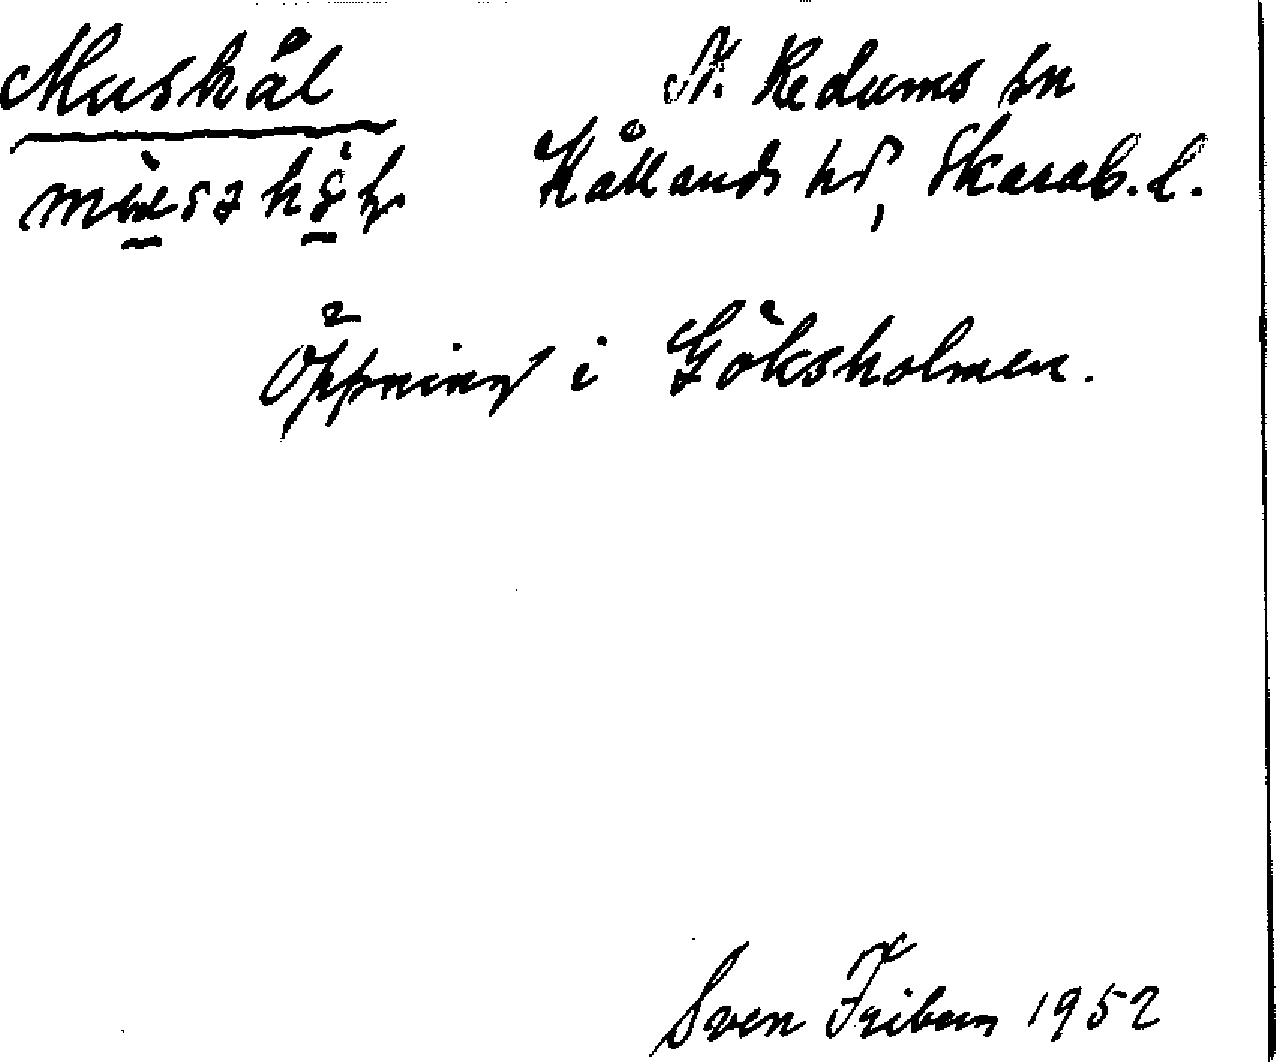 Mushål N. Kedums sn
Kållands hd, Skarab. l.
Öppning i Göksholmen.
Sven Friberg 1952